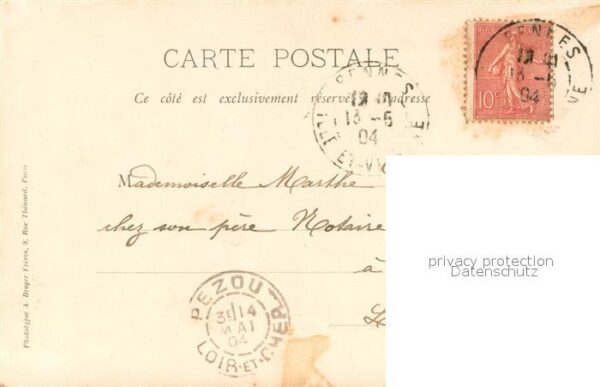 CARTE POSTALE
Ce côté est exclusivement réservé à l'adresse
RENNES
13 -5
04
ILLE-ET-VILAINE
RENNES
13 -5
04
NE
10c
Mademoiselle Marthe
chez son père Notaire
à
PEZOU
3E 14
MAI
04
LOIR-ET-CHER
Phototypie A. Breger Frères, 9, Rue Thénard, Paris
privacy protection
Datenschutz